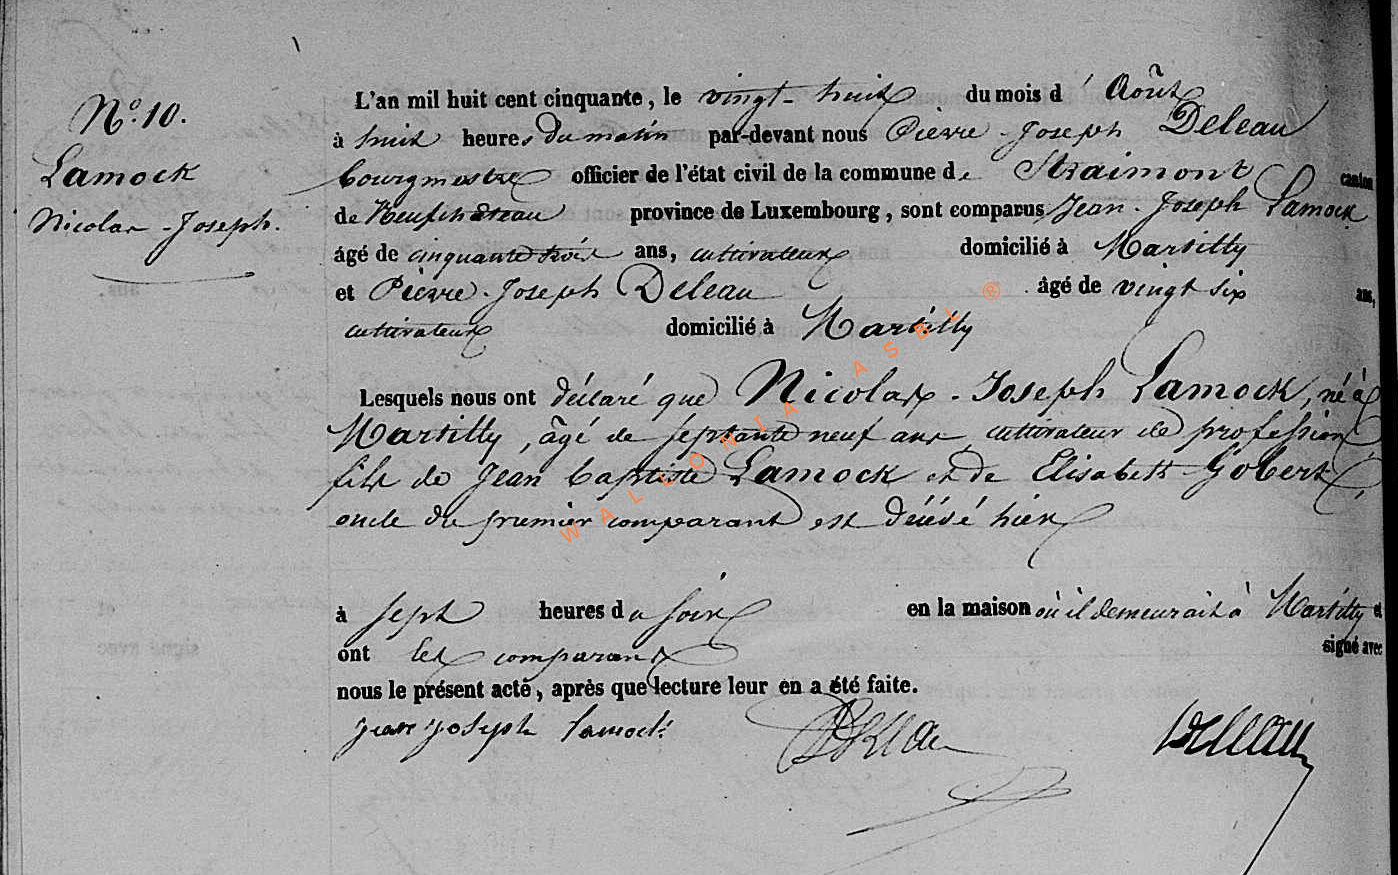 N.o 10.
Lamock
Nicolas - Joseph.
L'an mil huit cent cinquante, le vingt-huit du mois d' Août
à huit heures du matin par-devant nous Pierre - Joseph Deleau
bourgmestre officier de l'état civil de la commune de Straimont canton
de Neufchâteau province de Luxembourg, sont comparus Jean - Joseph Lamock
âgé de cinquante trois ans, cultivateur domicilié à Martilly
et Pierre - Joseph Deleau âgé de vingt six ans,
cultivateur domicilié à Martilly
Lesquels nous ont déclaré que Nicolas - Joseph Lamock, né à
Martilly, âgé de septante neuf ans, cultivateur de profession
fils de Jean baptiste Lamock et de Elisabeth Gobert
oncle du premier comparant est décédé hier
à sept heures du soir en la maison où il demeurait à Martilly et
ont les comparans signé avec
nous le présent acte, après que lecture leur en a été faite.
jean joseph lamock Deleau Deleau
WALLONIA ASBL ®